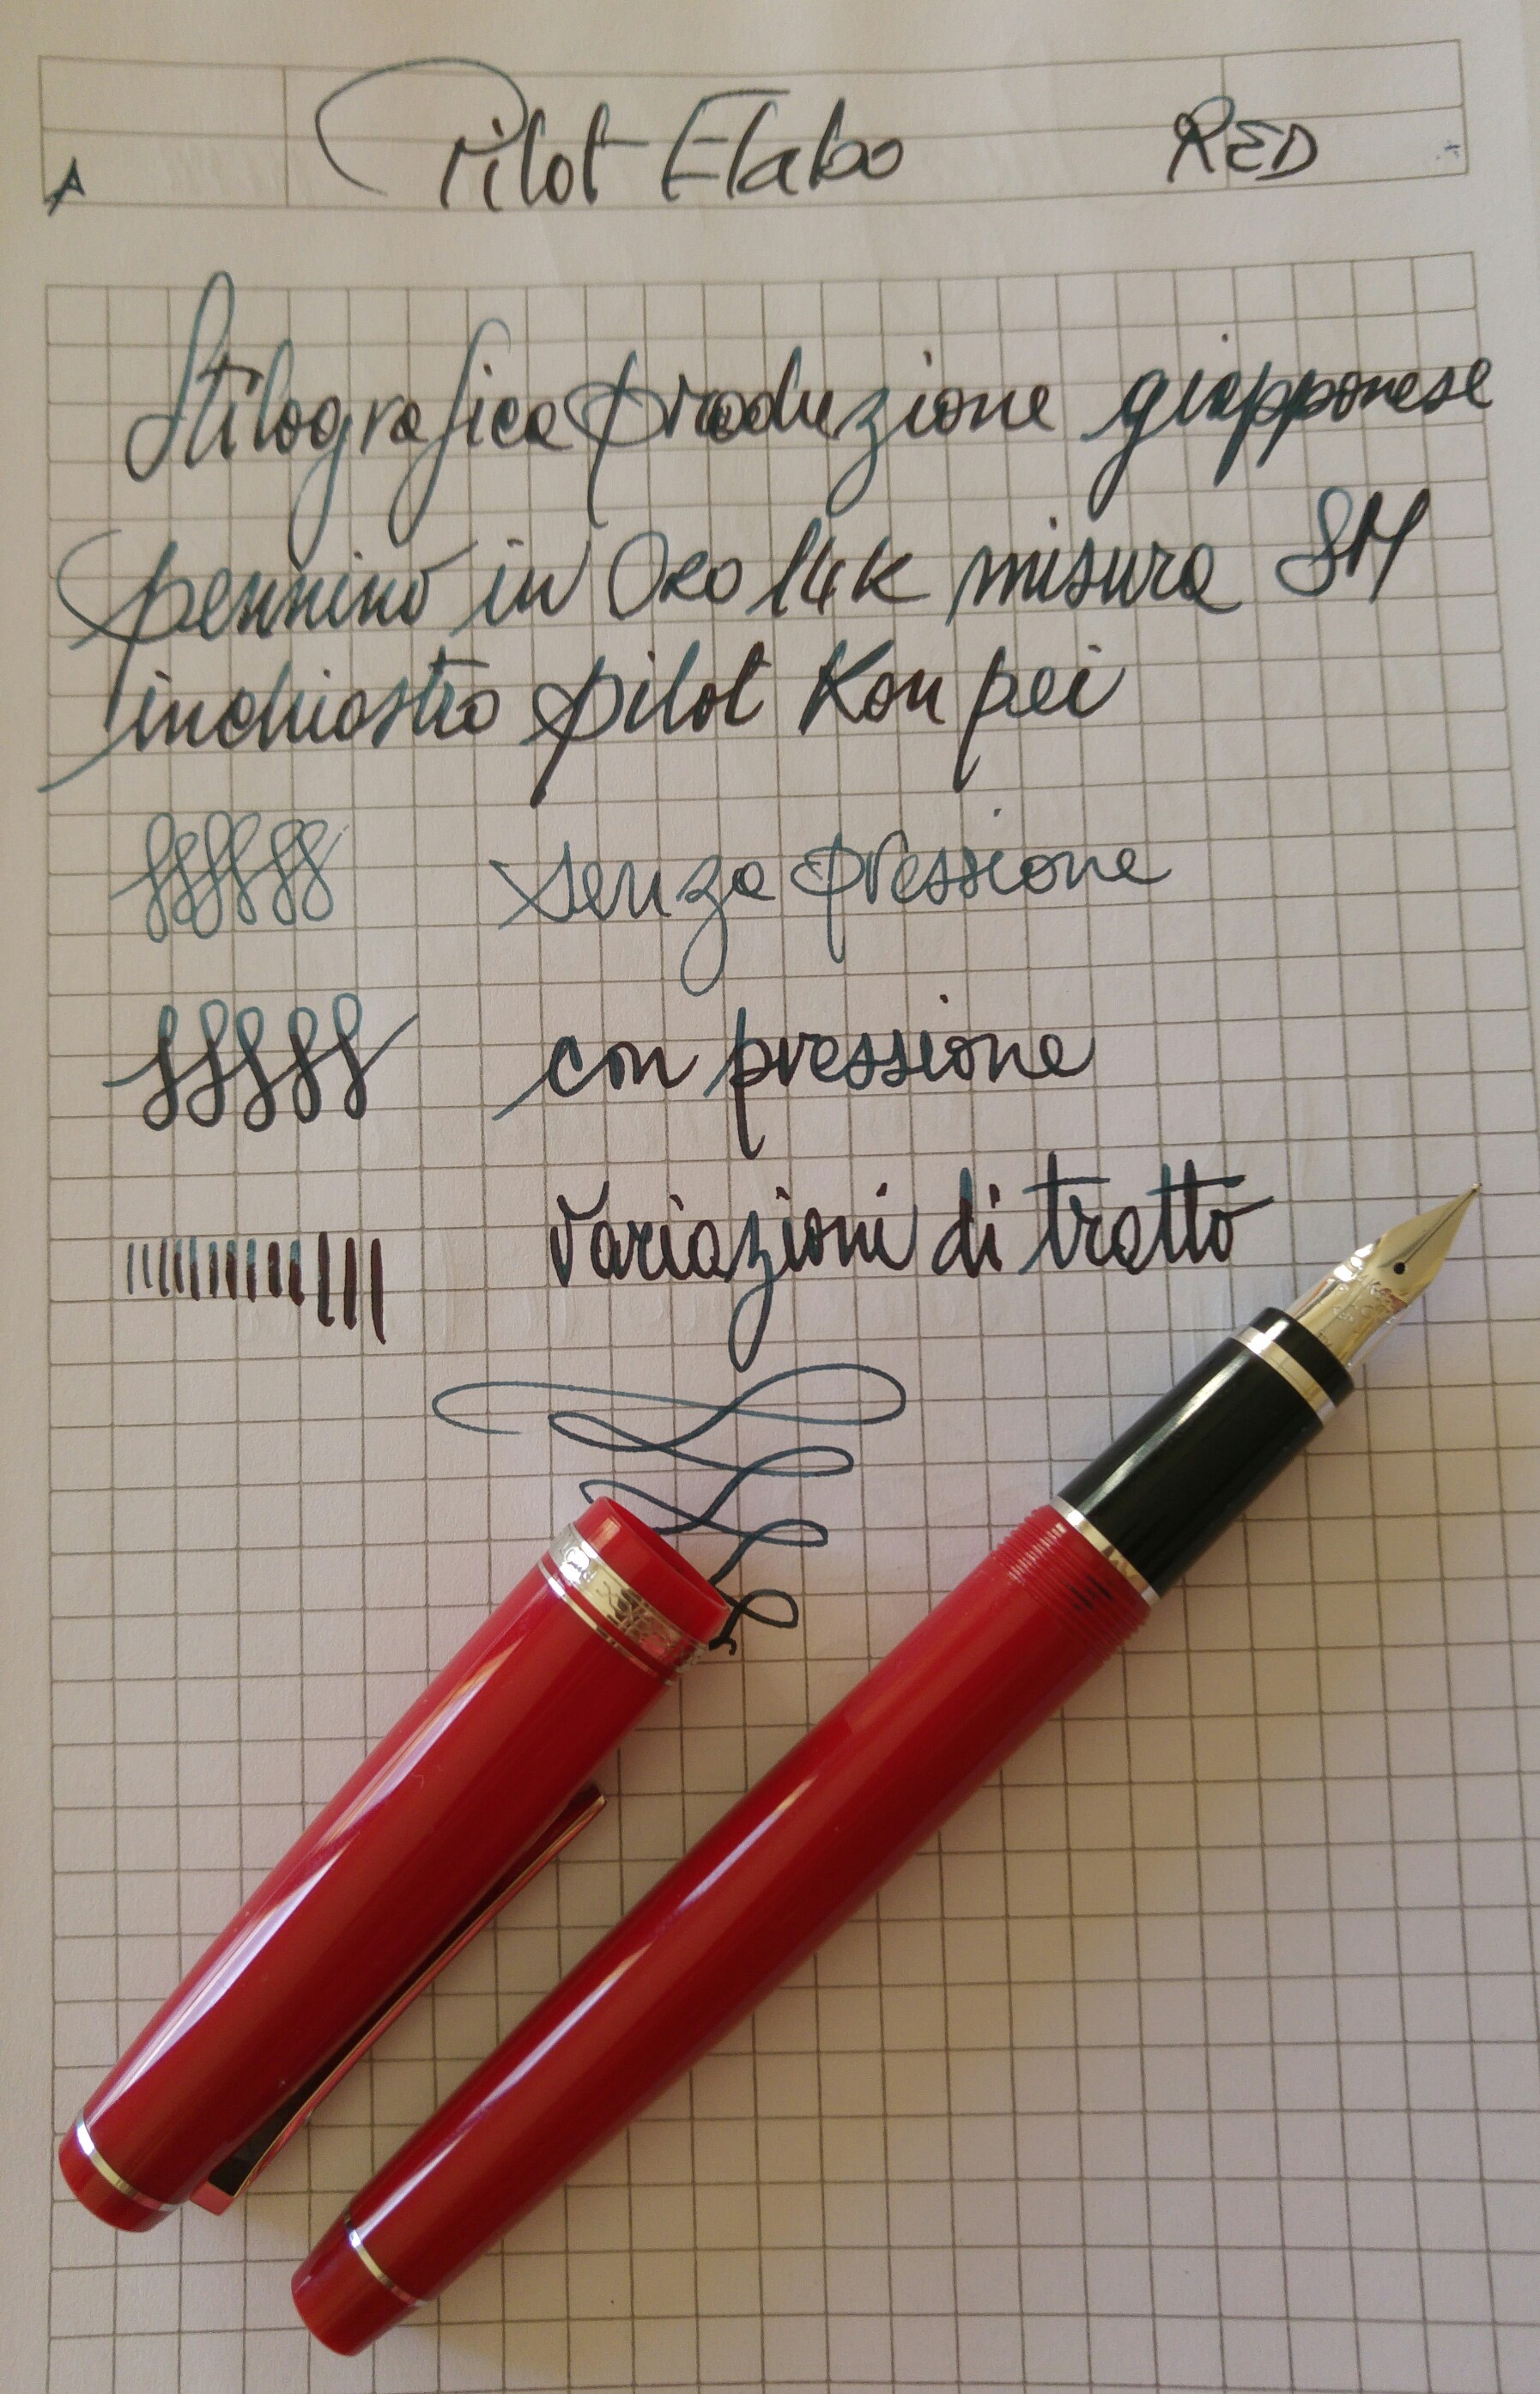 Pilot Elabo RED
A
Stilografica produzione giapponese
pennino in Oro 14K misura SM
inchiostro pilot Kon pei
senza pressione
con pressione
variazioni di tratto